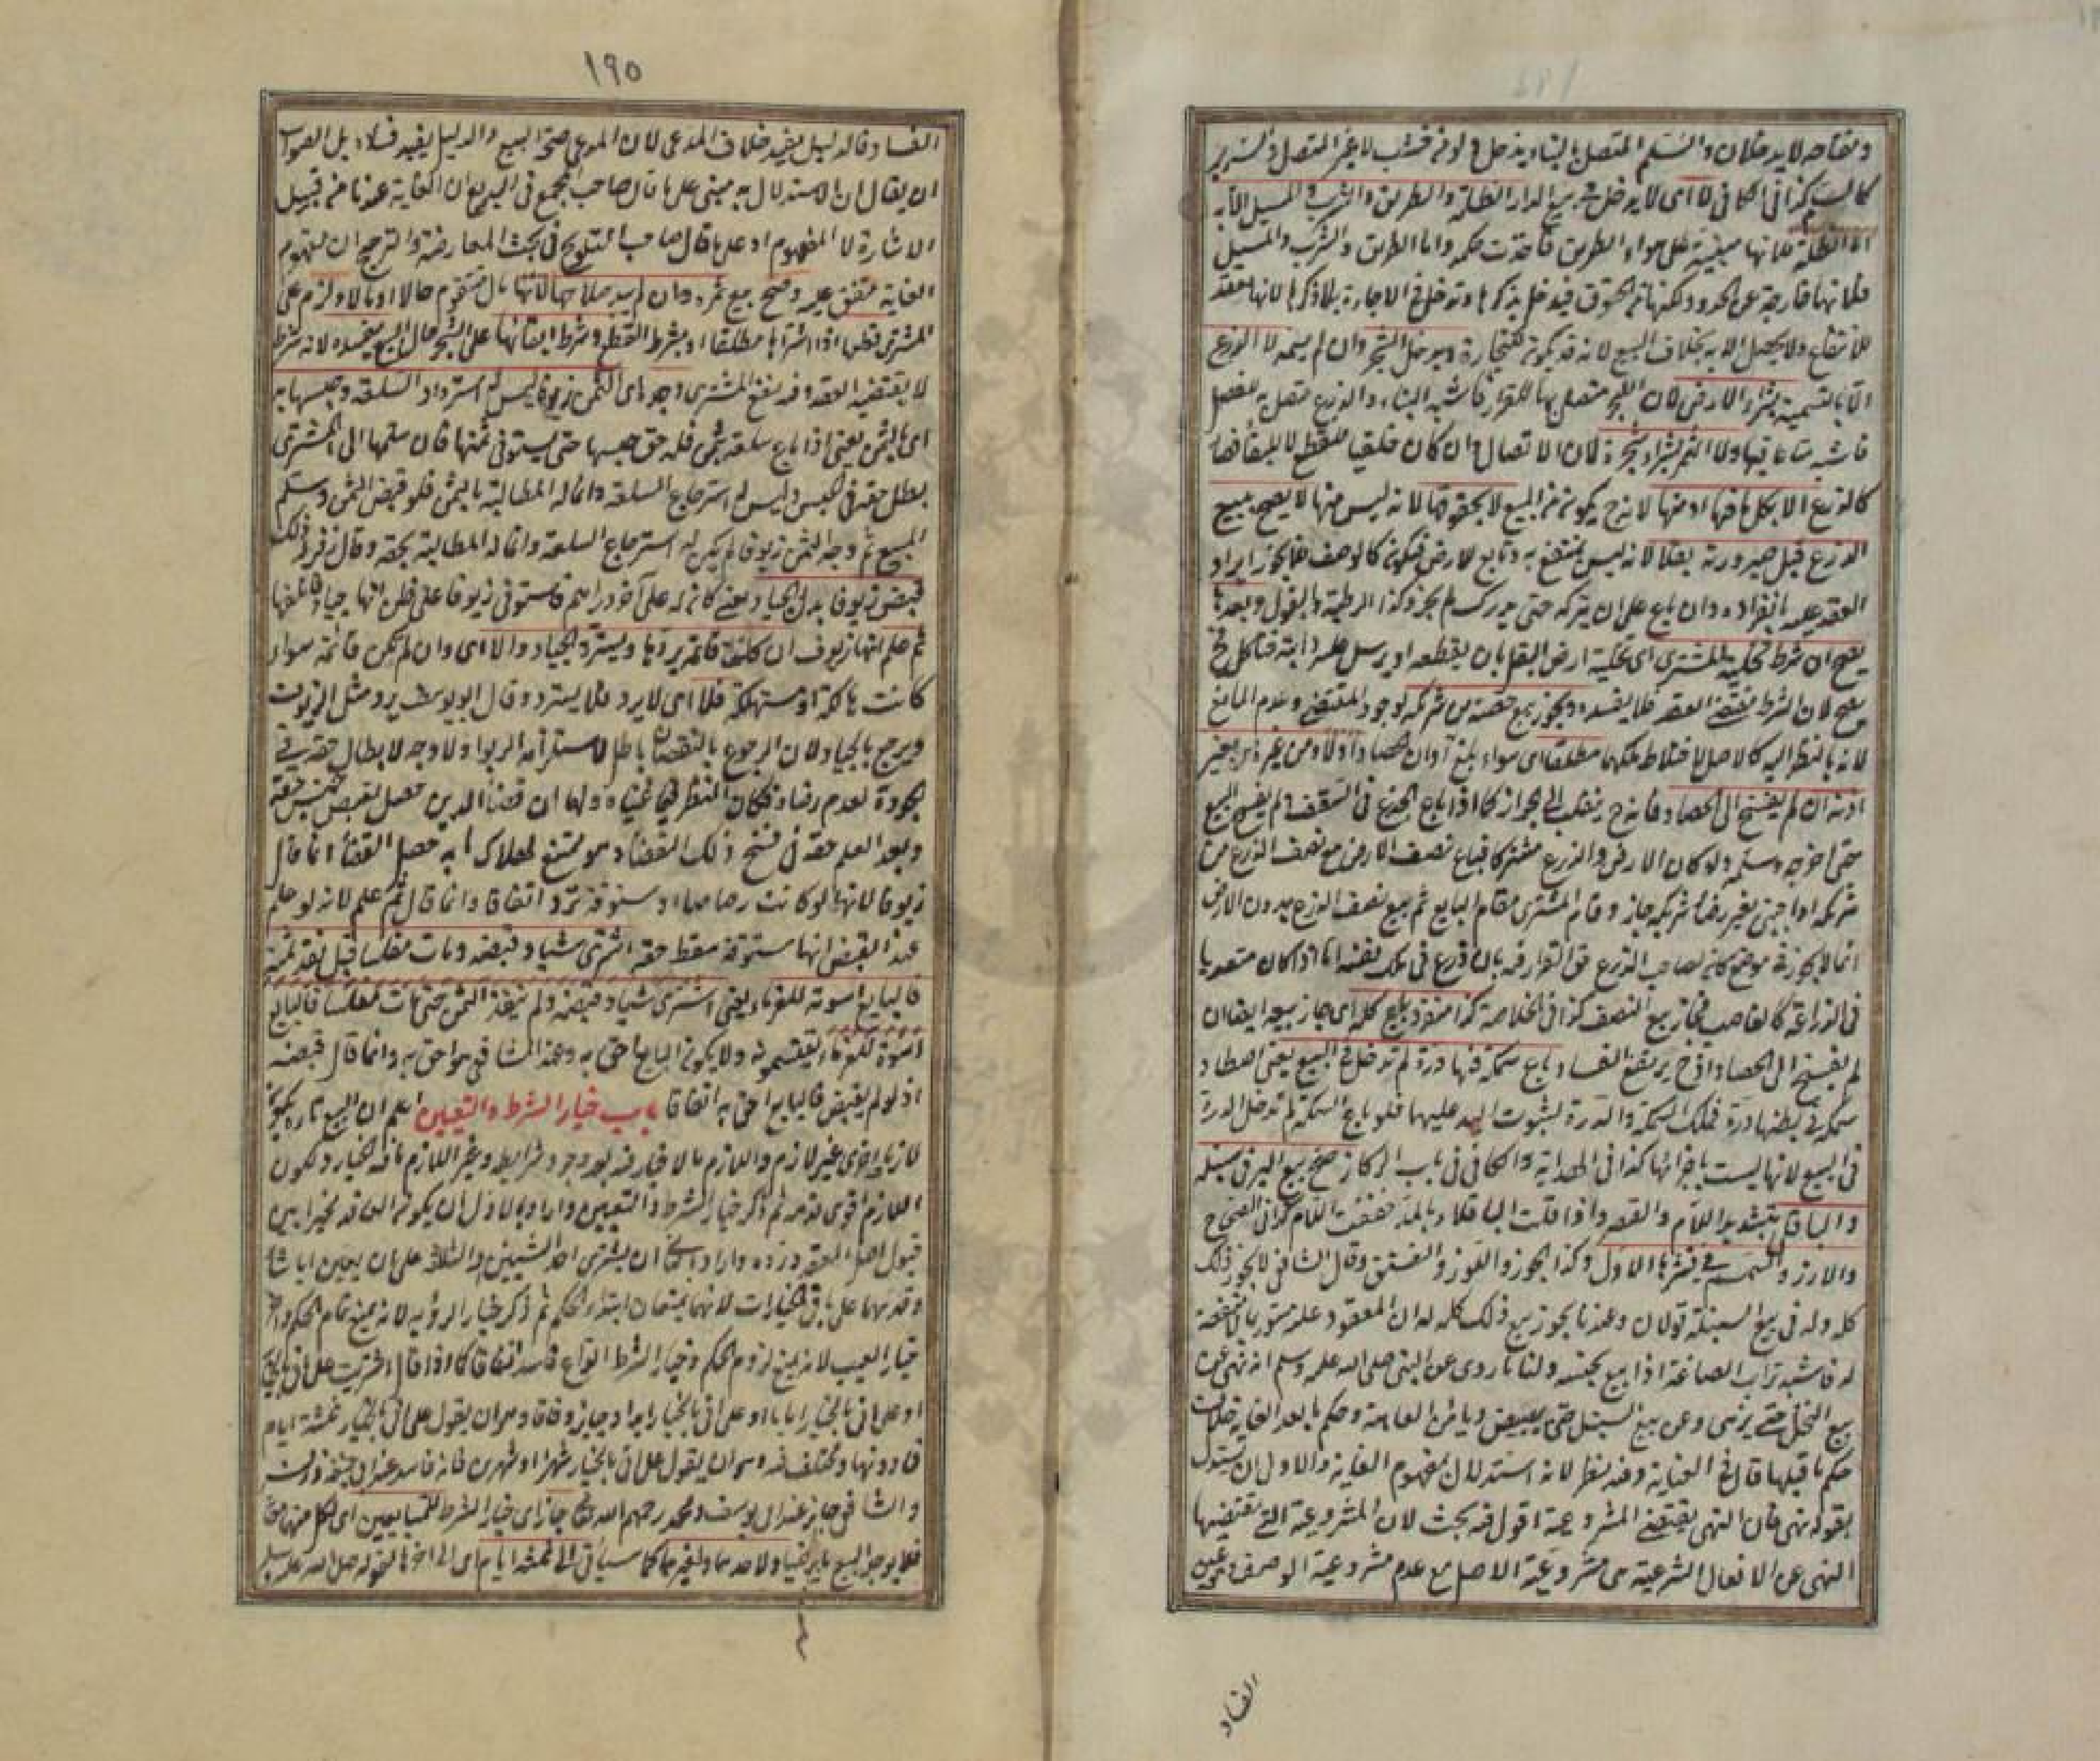 ومفتاحه لا يدخلان والسلم المتصل بالبناء يدخل ولو من خشب لا غير المتصل والسرير
كالسلم كذا في الكافي لا اي لا يدخل في بيع الدار الظلة والطريق والشرب والمسيل الا به
اما الظلة فلانها مبنية على هواء الطريق فاخذت حكمه واما الطريق والشرب والمسيل
فلانها خارجة عن الحدود لكنها من الحقوق فيدخل بذكرها وتدخل في الاجارة بلا ذكرها لانها تعقد
للانتفاع ولا يحصل الا به بخلاف البيع لانه قد يكون للتجارة ويدخل الشجر وان لم يسمه لا الزرع
الا بالتسمية بشراء الارض لان الشجر متصل بها للقرار فاشبه البناء والزرع متصل به للفصل
فاشبه متاعا فيها ولا الثمر بشراء شجرة لان الاتصال وان كان خلقيا للقطع لا للبقاء فصار
كالزرع الا بكل ما فيها او منها لانه ح يكون من المبيع لا بحقوقها لانه ليس منها لا يصح بيع
الزرع قبل صيرورته بقلا لانه ليس بمنتفع به وتابع للارض فيكون كالوصف فلا يجوز ايراد
العقد عليه بانفراده وان باع على ان يتركه حتى يدرك لم يجز وكذا الرطبة والبقول وبعدها
يصح ان شرط تخلية المشتري اي تخلية ارض البقل بان يقطعه او يرسل عليه دابته فتأكل ح
يصح لان الشرط مقتضى العقد فلا يفسده ويجوز بيع حصته من شريكه لوجود المقتضى وعدم المانع
لانه بالنظر اليه كالاصل لاختلاط ملكهما مطلقا اي سواء بلغ آوان الحصاد او لا ومن غيره بغير
اذنه ان لم يفسخ الى الحصاد فانه ح ينقلب الى الجواز كما اذا باع الجذع في السقف ولم يفسخ البيع
حتى اخرجه وسلمه ولو كان الارض والزرع مشتركا فباع نصف الارض مع نصف الزرع من
شريكه او اجنبي بغير رضا شريكه جاز وقام المشتري مقام البايع ثم بيع نصف الزرع بدون الارض
انما لا يجوز في موضع كان لصاحب الزرع حق القرار فيه بان زرع في ملك نفسه اما اذا كان متعديا
في الزراعة كالغاصب فجاز بيع النصف كذا في الخلاصة كذا منفرد بيع كله اي جاز بيعه ايضا ان
لم يفسخ الى الحصاد اذ ح يرتفع الفساد باع سمكة فيها درة لم تدخل في البيع يعني اصطاد
سمكة في بطنها درة فملك السمكة والدرة لثبوت اليد عليهما فلو باع السمكة لم تدخل الدرة
في البيع لانها ليست باجزائها كذا في الهداية والكافي في باب الركاز صح بيع البر في سنبله
والباقلى بتشديد اللام والقصر واذا قلت الباقلاء بالمد خففت اللام كذا في الصحاح
والارز والسمسم في قشرها الاول وكذا الجوز واللوز والفستق وقال الشافعي لا يجوز ذلك
كله وله في بيع السنبلة قولان وعندنا يجوز بيع ذلك كله له ان المعقود عليه مستور بما لا منفعة
له فاشبه تراب الصاغة اذا بيع بجنسه ولنا ما روي عن النبي صلى الله عليه وسلم انه نهى عن
بيع النخل حتى يزهى وعن بيع السنبل حتى يبيض ويأمن العاهة وحكم ما بعد الغاية خلاف
حكم ما قبلها قال في العناية وفيه نظر لانه استدلال بمفهوم الغاية والاولى ان يستدل
بقوله نهى فان النهى يقتضي المشروعية اقول فيه بحث لان المشروعية التي يقتضيها
النهى عن الافعال الشرعية هي مشروعية الاصل مع عدم مشروعية الوصف وهي عين
الفساد
١٩٥
الفساد فالدليل يفيد خلاف المدعى لان المدعى صحة البيع والدليل يفيد فساده بل الصواب
ان يقال ان الاستدلال به مبني على ما قال صاحب المجمع في البديع ان الغاية عندنا من قبيل
الاشارة لا المفهوم او على ما قال صاحب التلويح في بحث المعارضة والترجيح ان مفهوم
الغاية متفق عليه وصح بيع ثمرة وان لم يبد صلاحها لانها مال متقوم حالا او مآلا ولزم على
المشتري قطعها اذا اشتراها مطلقا او بشرط القطع وشرط ابقائها على الشجر حال البيع يفسده لانه شرط
لا يقتضيه العقد وفيه نفع المشتري وجد اي الثمن زيوفا ليس له استرداد السلعة وحبسها به
اي بالثمن يعني اذا باع سلعة بثمن فله حق حبسها حتى يستوفي ثمنها فان سلمها الى المشتري
بطل حقه في الحبس وليس له استرجاع السلعة وانما له المطالبة بالثمن فلو قبض الثمن وسلم
المبيع ثم وجد الثمن زيوفا لم يكن له استرجاع السلعة وانما له المطالبة بحقه وقال زفر له ذلك
قبض زيوفا بدل الجياد يعني كان له على آخر دراهم فاستوفى زيوفا على ظن انها جياد فانفقها
ثم علم انها زيوف ان كانت قائمة يردها ويسترد الجياد والا اي وان لم تكن قائمة سواء
كانت هالكة او مستهلكة فلا اي لا يرد فلا يسترد وقال ابو يوسف يرد مثل الزيوف
ويرجع بالجياد لان الرجوع بالنقصان باطل لاستلزامه الربوا ولا وجه لابطال حقه في
الجودة لعدم رضاه فكان النظر فيما عيناه ولهما ان قضاء الدين حصل بقبض جنس حقه
وبعد العلم حقه في فسخ ذلك القضاء وهو ممتنع لهلاك ما به حصل القضاء انما قال
زيوفا لانها لو كانت رصاصا او ستوقة ترد اتفاقا وانما قال ثم علم لانه لو علم
عند القبض انها ستوقة سقط حقه اشترى شيئا وقبضه ومات مفلسا قبل نقد ثمنه
فالبايع اسوة للغرماء يعني اشترى شيئا وقبضه ولم ينقد الثمن حتى مات مفلسا فالبايع
اسوة للغرماء يقتسمونه ولا يكون البايع احق به وعند الشافعي هو احق به وانما قال قبضه
اذ لو لم يقبض فالبايع احق به اتفاقا باب خيار الشرط والتعيين اعلم ان البيع تارة يكون
لازما واخرى غير لازم واللازم ما لا خيار فيه بعد وجود شرايطه وغير اللازم ما فيه الخيار ولكون
اللازم اقوى قدمه ثم ذكر خيار الشرط والتعيين واراد بالاول ان يكون العاقد مخيرا بين
قبول العقد ورده واراد بالثاني ان يشتري احد الشيئين او الثلاثة على ان يعين ايا شاء
وقدمهما على باقي الخيارات لانهما يمنعان ابتداء الحكم ثم ذكر خيار الرؤية لانه يمنع تمام الحكم واخر
خيار العيب لانه يمنع لزوم الحكم وخيار الشرط انواع فاسد اتفاقا كما اذا قال اشتريت على اني بالخيار
او على اني بالخيار اياما او على اني بالخيار ابدا وجايز وفاقا وهو ان يقول على اني بالخيار ثلثة ايام
فما دونها ومختلف فيه وهو ان يقول على اني بالخيار شهرا او شهرين فانه فاسد عند ابي حنيفة وزفر
والشافعي جايز عند ابي يوسف ومحمد رحمهم الله تع جاز اي خيار الشرط للمتبايعين اي لكل منهما معا
فلا يوجد البيع ما لم يرضيا ولاحدهما ولغيرهما كما سيأتي الى ثلثة ايام اي الى آخرها لقوله صلى الله عليه وسلم